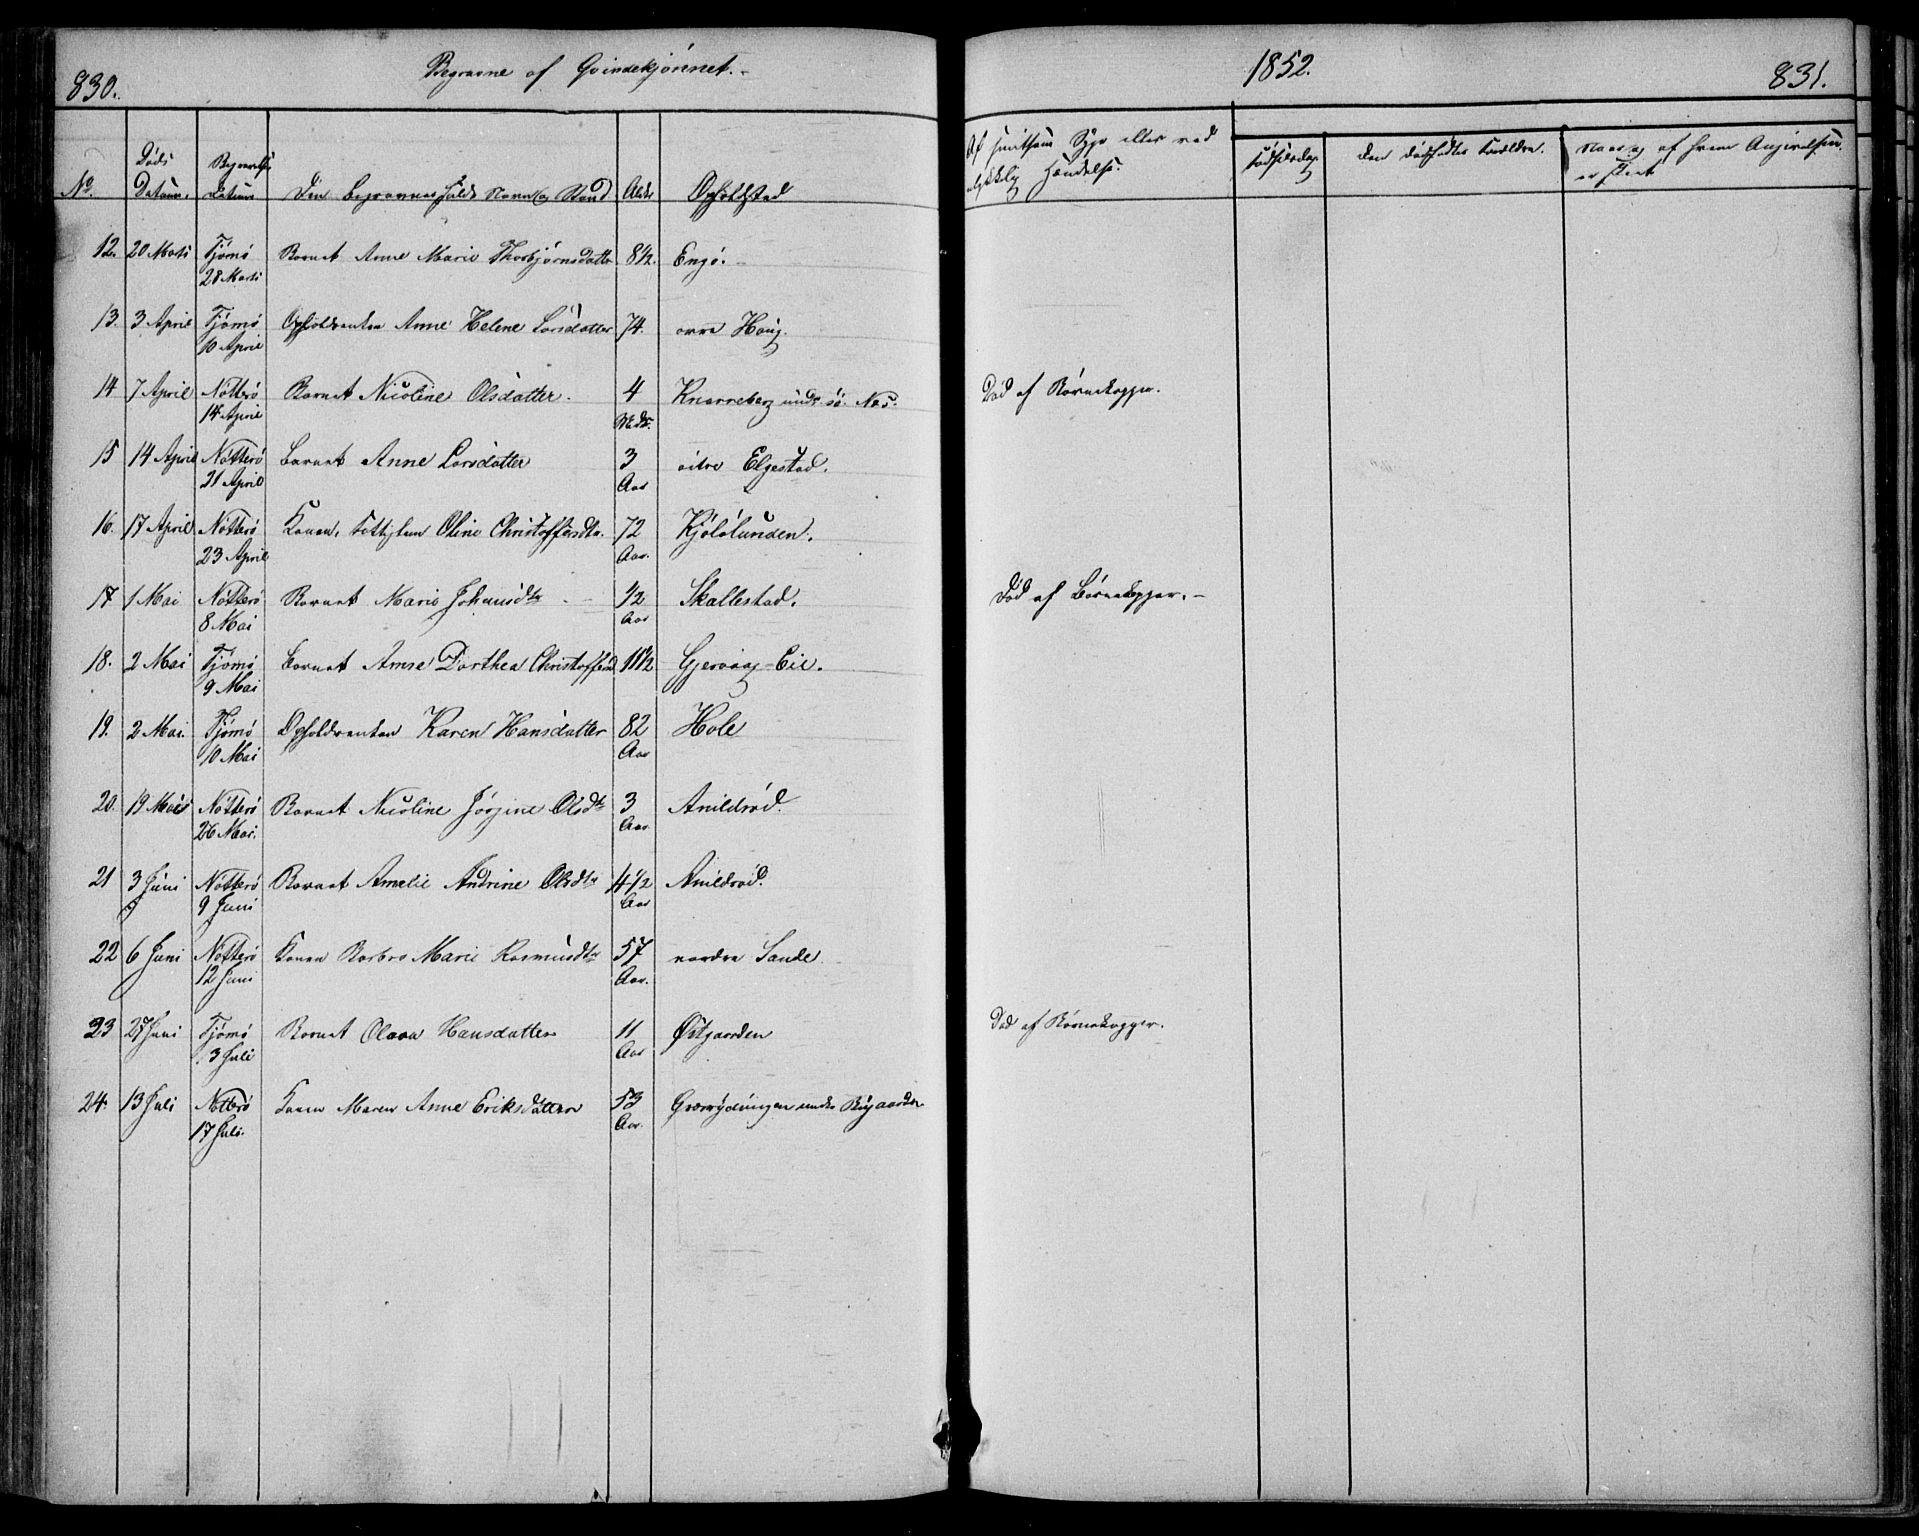 830.
Begravne af Qvindekjønnet.
1852.
831.
No.
Døds Datum.
Begravelses Datum
Den Begravnes fulde Navn og Stand
Alder
Opholdsted
Af smitsom Syge eller ved
ulykkelig Hændelse.
Fødselsdag
Den dødfødtes Forældre.
Naar og af hvem Angivelsen
er skeet
12. 20 Marts Tjømø Barnet Anne Marie Thorbjørnsdatter 8½. Engø.
28 Marts
13. 3 April Tjømø Opholdsenken Anne Helene Larsdatter 74. øvre Haug.
10 April
14 7 April Nøtterø Barnet Nicoline Olsdatter. 4 Knarreberg under sø. Næs. Død af Børnekopper.
14 April Mdr.
15 14 April Nøtterø Barnet Anne Larsdatter 3 øitre Elgestad.
21 April Aar
16. 17 April Nøtterø Konen, Oline Christoffersdtr. 72 Kjølølunden.
23 April Aar.
17 1 Mai Nøtterø Barnet Marie Johansdtr ½ Skallestad. Død af Børnekopper.
8 Mai Aar
18. 2 Mai Tjømø Barnet Anne Dorthea Christoffersd 11½ Gjervaag-Eie.
9 Mai
19. 2 Mai. Tjømø Opholdsenken Karen Hansdatter 82 Hole
10 Mai Aar
20. 19 Mai Nøtterø Barnet Nicoline Jørgine Olsdtr 3 Arildsrød.
26 Mai. Aar
21 3 Juni Nøtterø Barnet Amelie Andrine Olsdtr 4½ Arildsrød.
9 Juni Aar
22 6 Juni Nøtterø Konen Barbro Marie Rasmusdtr 57 nordre Sande
12 Juni Aar.
23 27 Juni Tjømø Barnet Olava Hansdatter 11 Østgaarden Død af Børnekopper.
3 Juli Aar
24. 13 Juli Nøtterø Konen Maren Anne Eriksdatter 53 under Bugaarden
17 Juli. Aar.